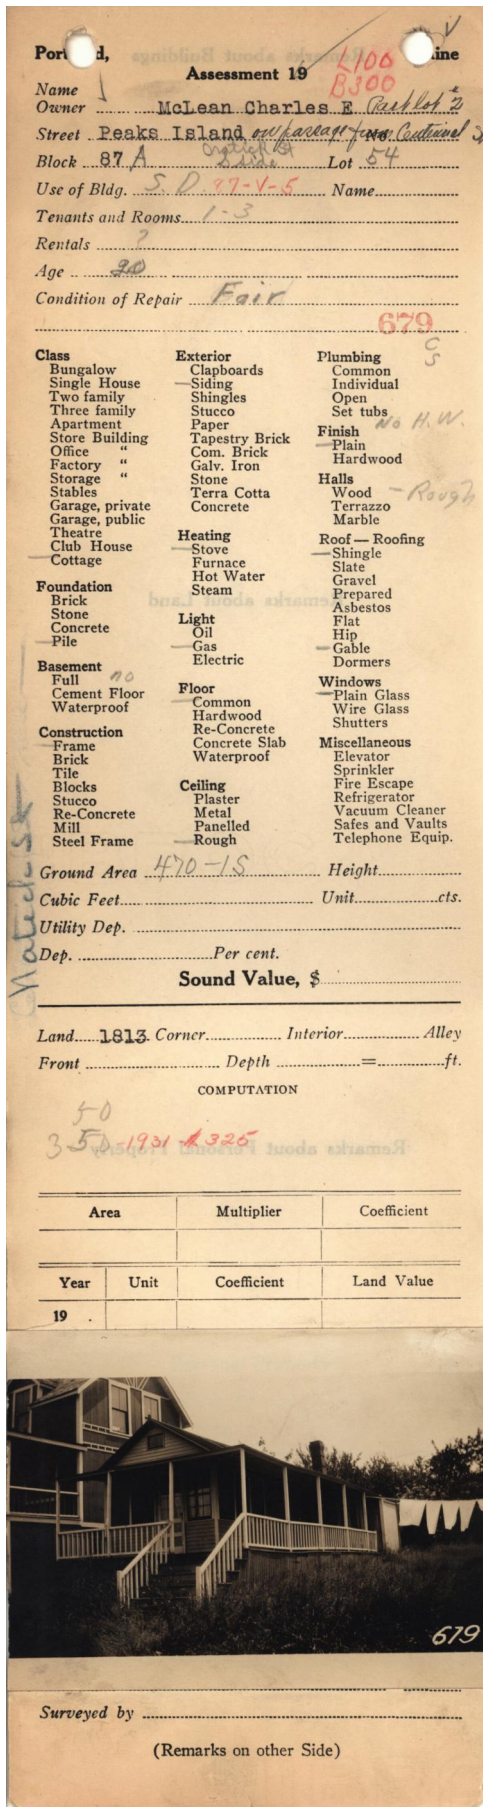 Portland, Maine
Assessment 19
L100
B300
Name
Owner McLean Charles E Part lot 2
Street Peaks Island on passage from Centennial St
Block 87 A Lot 54
Use of Bldg. S. D. 87-V-5 Name
Tenants and Rooms 1-3
Rentals ?
Age 20
Condition of Repair Fair
679
C
S
Class
Bungalow
Single House
Two family
Three family
Apartment
Store Building
Office "
Factory "
Storage "
Stables
Garage, private
Garage, public
Theatre
Club House
Cottage
Foundation
Brick
Stone
Concrete
Pile
Basement
Full no
Cement Floor
Waterproof
Construction
Frame
Brick
Tile
Blocks
Stucco
Re-Concrete
Mill
Steel Frame
Exterior
Clapboards
Siding
Shingles
Stucco
Paper
Tapestry Brick
Com. Brick
Galv. Iron
Stone
Terra Cotta
Concrete
Heating
Stove
Furnace
Hot Water
Steam
Light
Oil
Gas
Electric
Floor
Common
Hardwood
Re-Concrete
Concrete Slab
Waterproof
Ceiling
Plaster
Metal
Panelled
Rough
Plumbing
Common
Individual
Open
Set tubs
No H.W.
Finish
Plain
Hardwood
Halls
Wood - Rough
Terrazzo
Marble
Roof — Roofing
Shingle
Slate
Gravel
Prepared
Asbestos
Flat
Hip
Gable
Dormers
Windows
Plain Glass
Wire Glass
Shutters
Miscellaneous
Elevator
Sprinkler
Fire Escape
Refrigerator
Vacuum Cleaner
Safes and Vaults
Telephone Equip.
Ground Area 470-1S Height
Cubic Feet Unit cts.
Utility Dep.
Dep. Per cent.
Sound Value, $
Land 1813 Corner Interior Alley
Front Depth = ft.
COMPUTATION
50
350-1931-$325
Area Multiplier Coefficient
Year Unit Coefficient Land Value
19 .
679
Surveyed by
(Remarks on other Side)